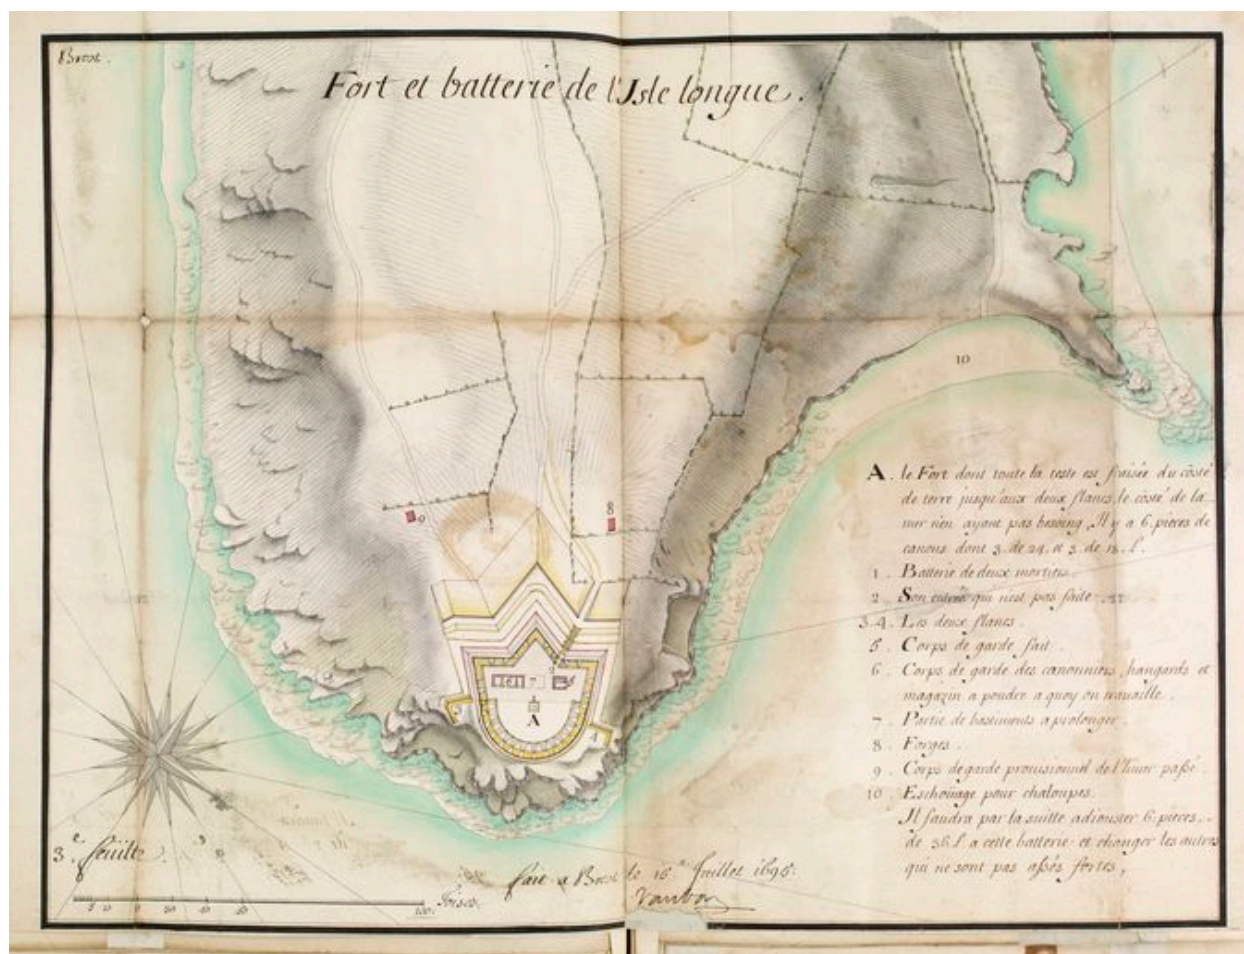 Brest.
Fort et batterie de l'Isle longue.
A. le Fort dont toute la teste est fraisée du costé
de terre jusqu'aux deux flancs, le costé de la
mer n'en ayant pas besoing, Il y a 6. pieces de
canons dont 3. de 24. et 3. de 18. l.
1. Batterie de deux mortiers.
2. Son entrée qui n'est pas faite
3.4. Les deux flancs.
5. Corps de garde fait.
6. Corps de garde des canonniers, hangards et
magazin a poudre a quoy on travaille.
7. Partie de bastiments a prolonger.
8. Forges.
9. Corps de garde provisionnel de l'hiver passé.
10. Eschoüage pour chaloupes.
Il faudra par la suitte adiouster 6. pieces
de 36 l. a cette batterie et changer les autres
qui ne sont pas assés fortes,
10
8
9
7
2
A
4
3.e feüille.
fait a Brest le 16.e Juillet 1695.
Vauban
Toises.
5 10
100